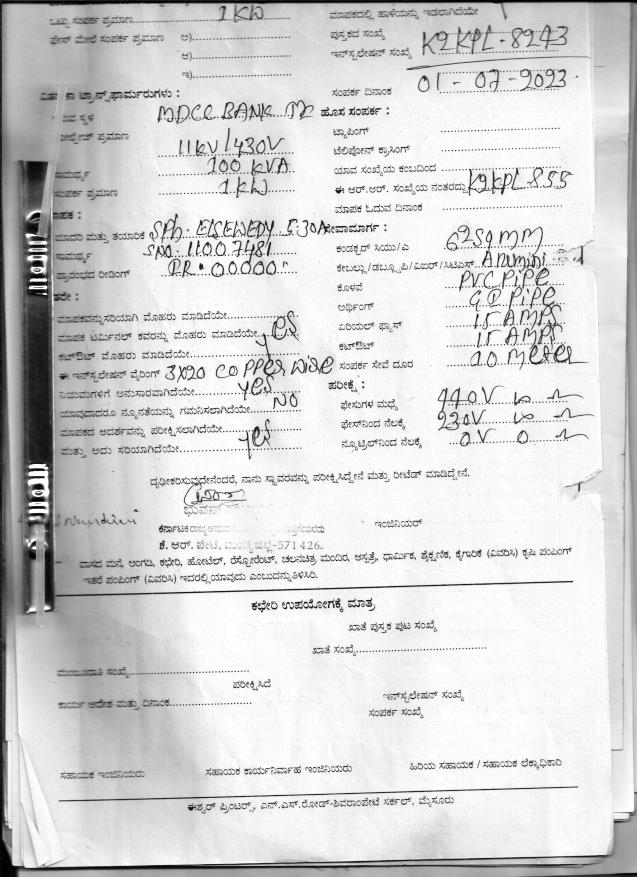 ಒಟ್ಟು ಸಂಪರ್ಕ ಪ್ರಮಾಣ 1 KW ಮಾಪಕದಲ್ಲಿ ಹಾಳೆಯನ್ನು ಇಡಲಾಗಿದೆಯೇ
ಫೇಸ್ ಮೇಲೆ ಸಂಪರ್ಕ ಪ್ರಮಾಣ ಅ) ಪುಸ್ತಕದ ಸಂಖ್ಯೆ
ಆ) ಇನ್‌ಸ್ಟಲೇಷನ್ ಸಂಖ್ಯೆ K2KPL-8243
ಇ) ಸಂಪರ್ಕ ದಿನಾಂಕ 01-07-2023
ಟ್ರಾನ್ಸ್‌ಫಾರ್ಮರುಗಳು :
ಸ್ಥಳ MDCC BANK TC ಹೊಸ ಸಂಪರ್ಕ :
ಪ್ರಮಾಣ 11KV/430V ಟ್ಯಾಪಿಂಗ್
ಟೆಲಿಫೋನ್ ಕ್ರಾಸಿಂಗ್
ಸಾಮರ್ಥ್ಯ 100 KVA ಯಾವ ಸಂಖ್ಯೆಯ ಕಂಬದಿಂದ
ಸಂಪರ್ಕ ಪ್ರಮಾಣ 1 KW ಈ ಆರ್.ಆರ್. ಸಂಖ್ಯೆಯ ನಂತರದ್ದು K2KPL-855
ಮಾಪಕ ಓದುವ ದಿನಾಂಕ
ಮಾಪಕ : ಸೇವಾಮಾರ್ಗ :
ಮಾದರಿ ಮತ್ತು ತಯಾರಿಕೆ SPh. ELSEWEDY 5-30A ಕಂಡಕ್ಟರ್ ಸಿಯು/ಎ 6 2Sqmm
ಸಾಮರ್ಥ್ಯ SNO. 11007481 ಕೇಬಲ್ಲು/ಡಬ್ಲ್ಯೂಪಿ/ವಿಐಆರ್/ಸಿಟಿಎಸ್
ಪ್ರಾರಂಭದ ರೀಡಿಂಗ್ RR.00000 ಕೊಳವೆ PVC PiPe
ಇತರೇ : ಅರ್ಥಿಂಗ್ G.I PiPe
ಮಾಪಕವನ್ನು ಸರಿಯಾಗಿ ಮೊಹರು ಮಾಡಿದೆಯೇ ಏರಿಯಲ್ ಫ್ಯೂಸ್ 15 AMPS
ಮಾಪಕ ಟರ್ಮಿನಲ್ ಕವರನ್ನು ಮೊಹರು ಮಾಡಿದೆಯೇ yes
ಕಟ್‌ಔಟ್ ಮೊಹರು ಮಾಡಿದೆಯೇ ಕಟ್‌ಔಟ್ 15 AMPS
ಈ ಇನ್‌ಸ್ಟಲೇಷನ್ ವೈರಿಂಗ್ 3X20 COPPER WIRE ಸಂಪರ್ಕ ಸೇವೆ ದೂರ 10 Meter
ನಿಯಮಗಳಿಗೆ ಅನುಸಾರವಾಗಿದೆಯೇ yes ಪರೀಕ್ಷೆ :
ಯಾವುದಾದರೂ ನ್ಯೂನತೆಯನ್ನು ಗಮನಿಸಲಾಗಿದೆಯೇ NO ಫೇಸುಗಳ ಮಧ್ಯೆ 440V ∞ Ω
ಮಾಪಕದ ಆದರ್ಶವನ್ನು ಪರೀಕ್ಷಿಸಲಾಗಿದೆಯೇ ಫೇಸ್‌ನಿಂದ ನೆಲಕ್ಕೆ 230V ∞ Ω
ಮತ್ತು ಅದು ಸರಿಯಾಗಿದೆಯೇ yes ನ್ಯೂಟ್ರಲ್‌ನಿಂದ ನೆಲಕ್ಕೆ 0V 0 Ω
ದೃಢೀಕರಿಸುವುದೇನೆಂದರೆ, ನಾನು ಸ್ಥಾವರವನ್ನು ಪರೀಕ್ಷಿಸಿದ್ದೇನೆ ಮತ್ತು ರೀಟೆಡ್ ಮಾಡಿದ್ದೇನೆ.
ಇಂಜಿನಿಯರ್
ಕೆ. ಆರ್. ಪೇಟೆ, ಮಂಡ್ಯ ಜಿಲ್ಲೆ-571 426.
ವಾಸದ ಮನೆ, ಅಂಗಡಿ, ಕಛೇರಿ, ಹೋಟೆಲ್, ರೆಸ್ಟೋರೆಂಟ್, ಚಲನಚಿತ್ರ ಮಂದಿರ, ಆಸ್ಪತ್ರೆ, ಧಾರ್ಮಿಕ, ಶೈಕ್ಷಣಿಕ, ಕೈಗಾರಿಕೆ (ವಿವರಿಸಿ) ಕೃಷಿ ಪಂಪಿಂಗ್
ಇತರೆ ಪಂಪಿಂಗ್ (ವಿವರಿಸಿ) ಇದರಲ್ಲಿ ಯಾವುದು ಎಂಬುದನ್ನು ತಿಳಿಸಿರಿ.
ಕಛೇರಿ ಉಪಯೋಗಕ್ಕೆ ಮಾತ್ರ
ಖಾತೆ ಪುಸ್ತಕ ಪುಟ ಸಂಖ್ಯೆ
ಖಾತೆ ಸಂಖ್ಯೆ
ಮಂಜೂರಾತಿ ಸಂಖ್ಯೆ
ಪರೀಕ್ಷಿಸಿದೆ
ಕಾರ್ಯ ಆದೇಶ ಮತ್ತು ದಿನಾಂಕ ಇನ್‌ಸ್ಟಲೇಷನ್ ಸಂಖ್ಯೆ
ಸಂಪರ್ಕ ಸಂಖ್ಯೆ
ಸಹಾಯಕ ಇಂಜಿನಿಯರು ಸಹಾಯಕ ಕಾರ್ಯನಿರ್ವಾಹ ಇಂಜಿನಿಯರು ಹಿರಿಯ ಸಹಾಯಕ / ಸಹಾಯಕ ಲೆಕ್ಕಾಧಿಕಾರಿ
ಈಶ್ವರ್ ಪ್ರಿಂಟರ್‍ಸ್, ಎನ್.ಎಸ್.ರೋಡ್-ಶಿವರಾಂಪೇಟೆ ಸರ್ಕಲ್, ಮೈಸೂರು